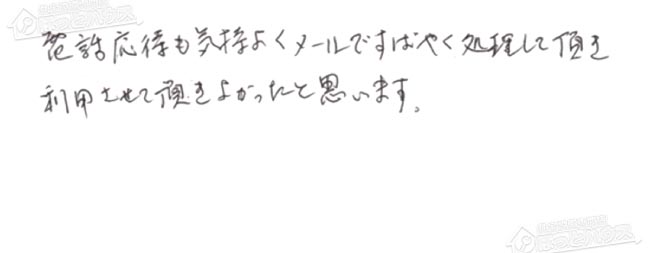 電話応待も気持よくメールですばやく処理して頂き
利用させて頂きよかったと思います。